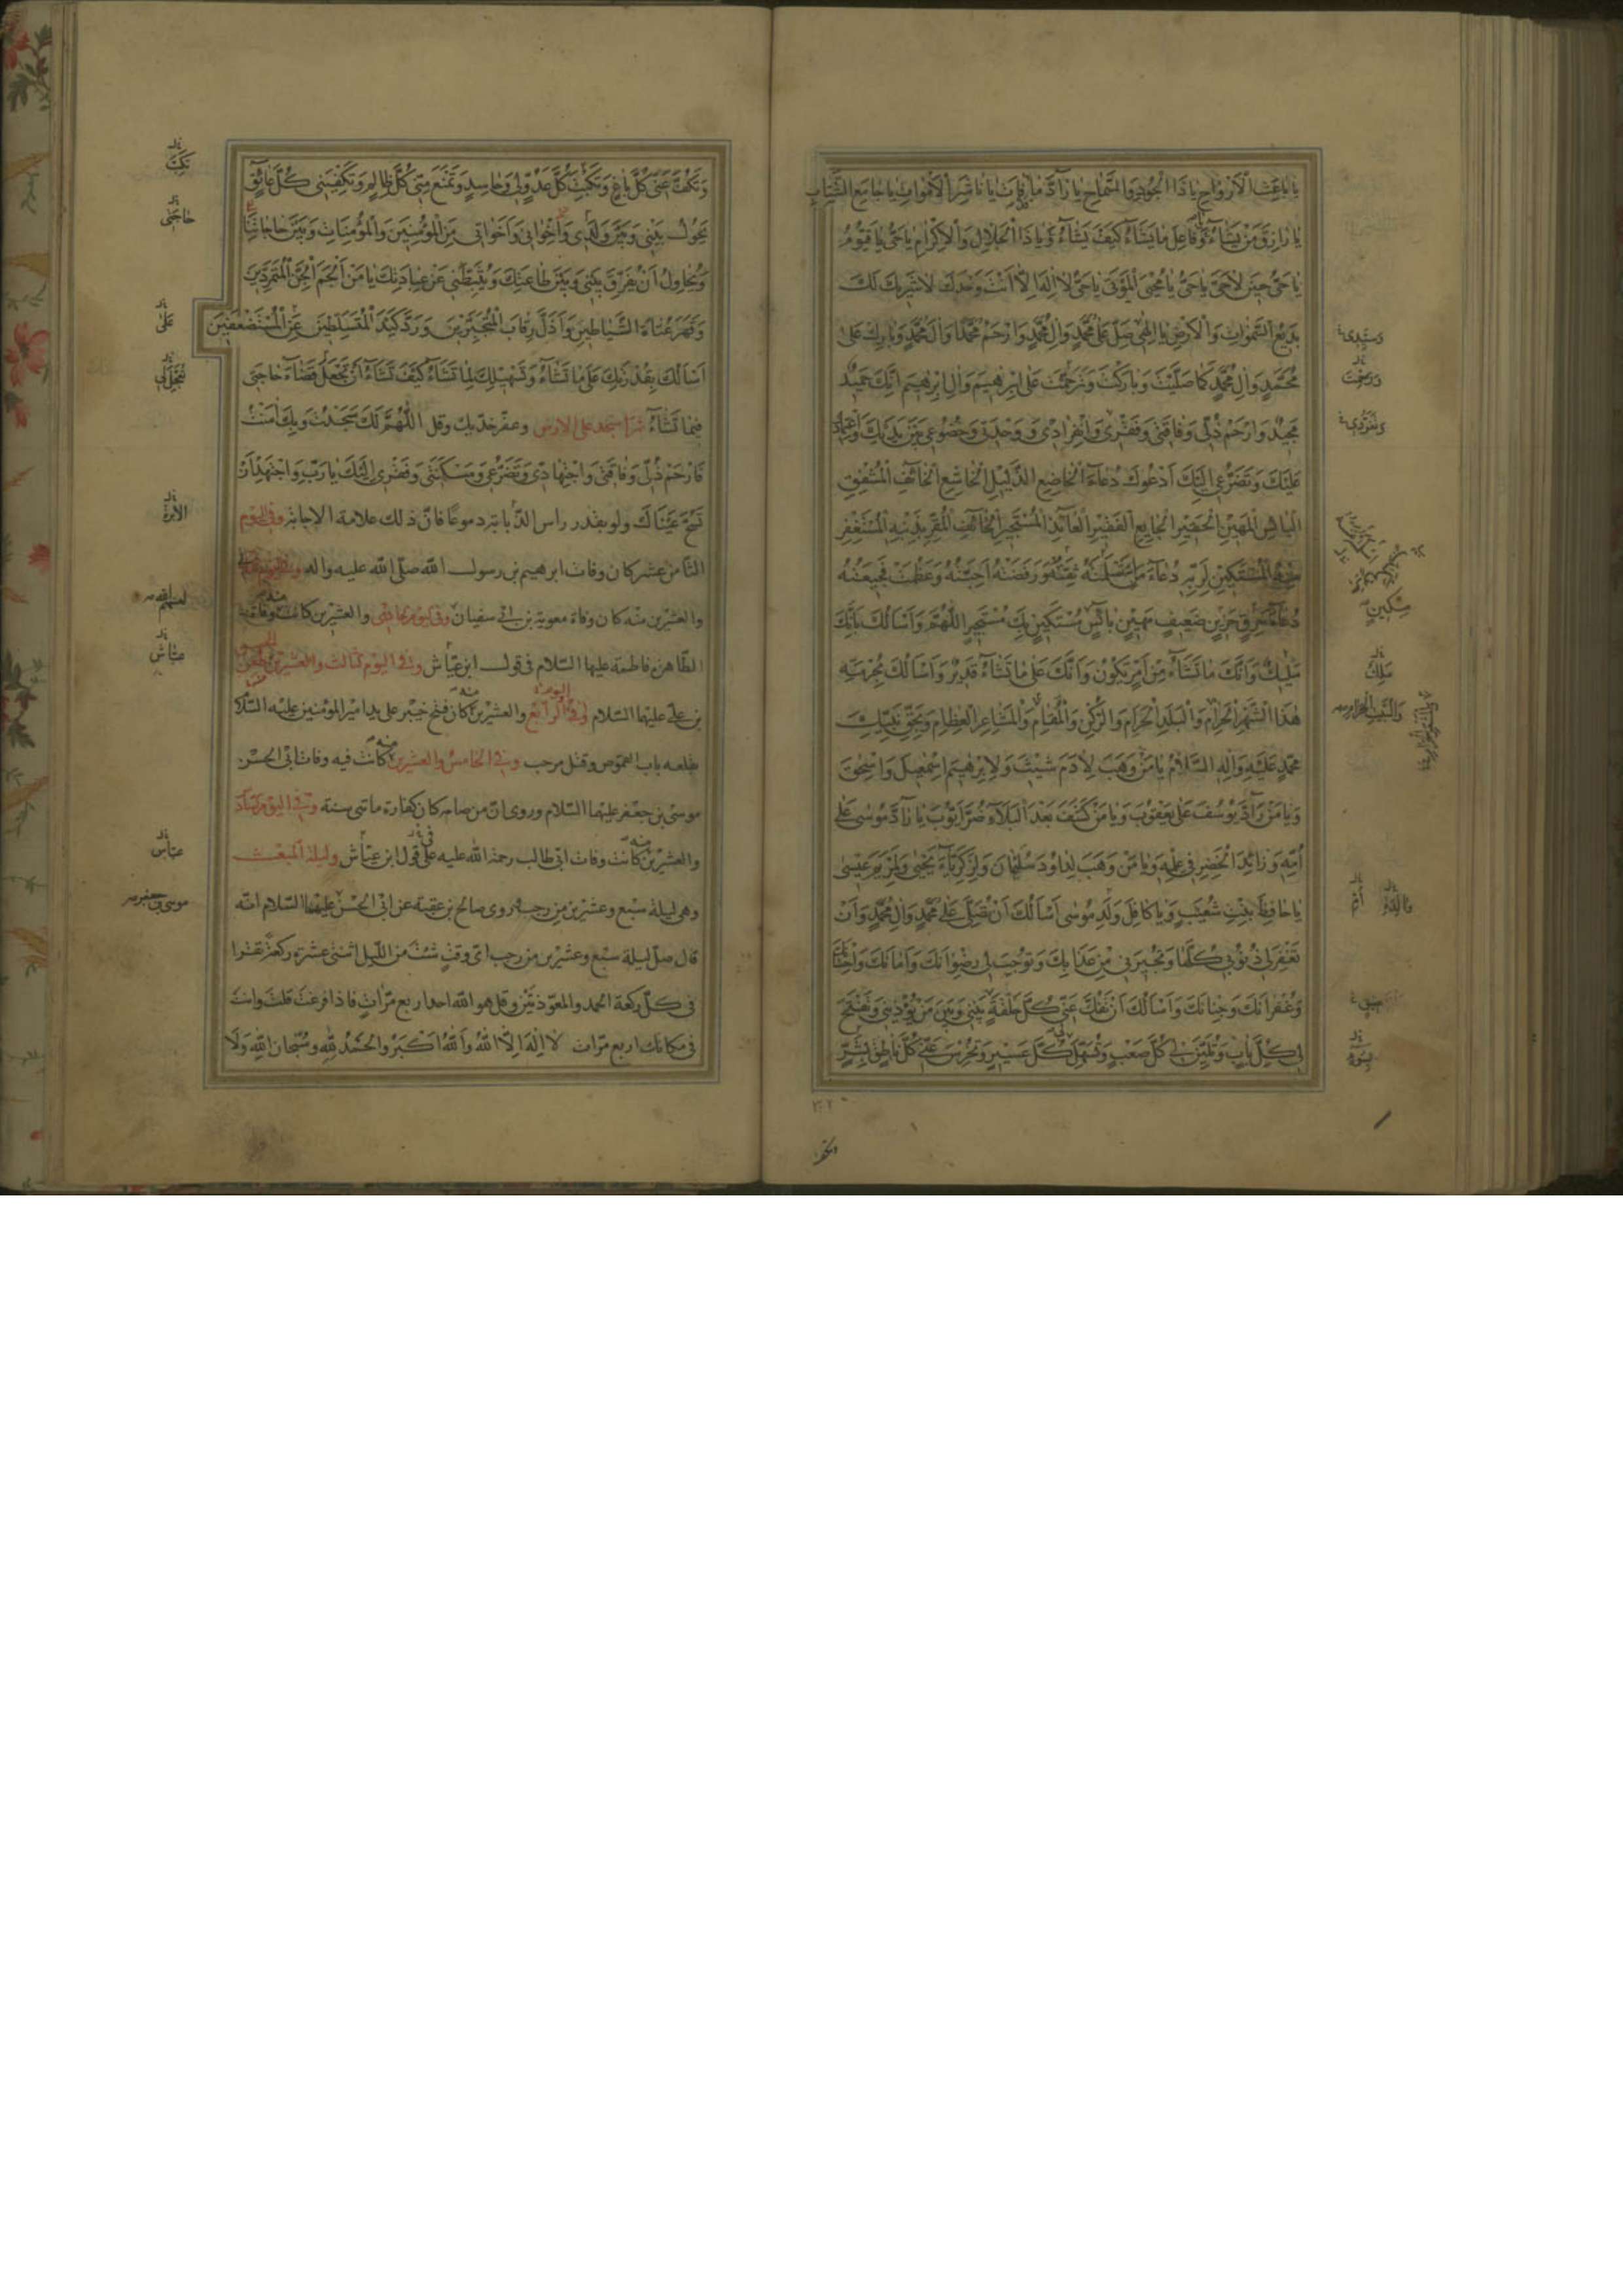 يا باعِثَ الْاَرْواحِ يا ذَا الْجُودِ وَالسَّماحِ يا رادَّ ما قَدْ فاتَ يا ناشِرَ الْاَمْواتِ يا جامِعَ الشَّتاتِ
يا رازِقَ مَنْ يَشاءُ وَفاعِلَ ما يَشاءُ كَيْفَ يَشاءُ وَيا ذَا الْجَلالِ وَالْاِكْرامِ يا حَيُّ يا قَيُّومُ
يا حَيُّ حينَ لا حَيَّ يا حَيُّ يا مُحْيِيَ الْمَوْتى يا حَيُّ لا اِلهَ اِلّا اَنْتَ وَحْدَكَ لا شَريكَ لَكَ
بَديعُ السَّمواتِ وَالْاَرْضِ يا اِلهي صَلِّ عَلى مُحَمَّدٍ وَالِ مُحَمَّدٍ وَارْحَمْ مُحَمَّدًا وَالَ مُحَمَّدٍ وَبارِكْ عَلى
مُحَمَّدٍ وَالِ مُحَمَّدٍ كَما صَلَّيْتَ وَبارَكْتَ وَتَرَحَّمْتَ عَلى اِبْرهيمَ وَالِ اِبْرهيمَ اِنَّكَ حَميدٌ
مَجيدٌ وَارْحَمْ ذُلّي وَفاقَتي وَفَقْري وَانْفِرادي وَوَحْدَتي وَخُضُوعي بَيْنَ يَدَيْكَ وَاعْتِمادي
عَلَيْكَ وَتَضَرُّعي اِلَيْكَ اَدْعُوكَ دُعاءَ الْخاضِعِ الذَّليلِ الْخاشِعِ الْخائِفِ الْمُشْفِقِ
الْبائِسِ الْمَهينِ الْحَقيرِ الْجايِعِ الْفَقيرِ الْعائِذِ الْمُسْتَجيرِ الْمُقِرِّ بِذَنْبِهِ الْمُسْتَغْفِرِ
مِنْهُ الْمُسْتَكينِ لِرَبِّهِ دُعاءَ مَنْ اَسْلَمَتْهُ ثِقَتُهُ وَرَفَضَتْهُ اَحِبَّتُهُ وَعَظُمَتْ فَجيعَتُهُ
دُعاءَ حَرِقٍ حَزينٍ ضَعيفٍ مَهينٍ بائِسٍ مُسْتَكينٍ بِكَ مُسْتَجيرٍ اَللّهُمَّ وَاَسْاَلُكَ بِاَنَّكَ
مَليكٌ وَاَنَّكَ ما تَشاءُ مِنْ اَمْرٍ يَكُونُ وَاَنَّكَ عَلى ما تَشاءُ قَديرٌ وَاَسْاَلُكَ بِحُرْمَةِ
هذَا الشَّهْرِ الْحَرامِ وَالْبَلَدِ الْحَرامِ وَالرُّكْنِ وَالْمَقامِ وَالْمَشاعِرِ الْعِظامِ وَبِحَقِّ نَبِيِّكَ
مُحَمَّدٍ عَلَيْهِ وَالِهِ السَّلامُ يا مَنْ وَهَبَ لِادَمَ شَيْثَ وَلِاِبْرهيمَ اِسْمعيلَ وَاِسْحقَ
وَيا مَنْ رَدَّ يُوسُفَ عَلى يَعْقُوبَ وَيا مَنْ كَشَفَ بَعْدَ الْبَلاءِ ضُرَّ اَيُّوبَ يا رادَّ مُوسى عَلى
اُمِّهِ وَزائِدَ الْخِضْرِ في عِلْمِهِ وَيا مَنْ وَهَبَ لِداوُدَ سُلَيْمانَ وَلِزَكَرِيّا يَحْيى وَلِمَرْيَمَ عيسى
يا حافِظَ بِنْتِ شُعَيْبٍ وَيا كافِلَ وَلَدِ مُوسى اَسْاَلُكَ اَنْ تُصَلِّيَ عَلى مُحَمَّدٍ وَالِ مُحَمَّدٍ وَاَنْ
تَغْفِرَ لي ذُنُوبي كُلَّها وَتُجيرَني مِنْ عَذابِكَ وَتُوجِبَ لي رِضْوانَكَ وَاَمانَكَ وَاِحْسانَكَ
وَغُفْرانَكَ وَجِنانَكَ وَاَسْاَلُكَ اَنْ تَفُكَّ عَنّي كُلَّ حَلْقَةٍ بَيْني وَبَيْنَ مَنْ يُؤْذيني وَتَفْتَحَ
لي كُلَّ بابٍ وَتُلَيِّنَ لي كُلَّ صَعْبٍ وَتُسَهِّلَ لي كُلَّ عَسيرٍ وَتُخْرِسَ عَنّي كُلَّ ناطِقٍ بِشَرٍّ
سَيِّدي
مِسْكينٍ
مَلِكٌ
وَالْبَيْتِ الْحَرامِ
بِسُوءٍ
وَتَكُفَّ عَنّي كُلَّ باغٍ وَتَكْبِتَ كُلَّ عَدُوٍّ لي وَحاسِدٍ وَتَمْنَعَ مِنّي كُلَّ ظالِمٍ وَتَكْفِيَني كُلَّ عائِقٍ
يَحُولُ بَيْني وَبَيْنَ وَلَدي وَاِخْواني وَاَخَواتي مِنَ الْمُؤْمِنينَ وَالْمُؤْمِناتِ وَبَيْنَ حاجاتِنا
وَيُحاوِلُ اَنْ يُفَرِّقَ بَيْني وَبَيْنَ طاعَتِكَ وَيُثَبِّطَني عَنْ عِبادَتِكَ يا مَنْ اَلْجَمَ الْجِنَّ الْمُتَمَرِّدينَ
وَقَهَرَ عُتاةَ الشَّياطينِ وَاَذَلَّ رِقابَ الْمُتَجَبِّرينَ وَرَدَّ كَيْدَ الْمُتَسَلِّطينَ عَنِ الْمُسْتَضْعَفينَ
اَسْاَلُكَ بِقُدْرَتِكَ عَلى ما تَشاءُ وَتَسْهيلِكَ لِما تَشاءُ كَيْفَ تَشاءُ اَنْ تَجْعَلَ قَضاءَ حاجَتي
فيما تَشاءُ ثم اسجد على الارض وعفر خديك وقل اَللّهُمَّ لَكَ سَجَدْتُ وَبِكَ امَنْتُ
فَارْحَمْ ذُلّي وَفاقَتي وَاجْتِهادي وَتَضَرُّعي وَمَسْكَنَتي وَفَقْري اِلَيْكَ يا رَبِّ وَاجْتَهِدْ اَنْ
تَسُحَّ عَيْناكَ ولو بقدر راس الذبابة دموعًا فان ذلك علامة الاجابة وفي اليوم
الثامن عشر كان وفات ابرهيم بن رسول الله صلى الله عليه واله
والعشرين منه كان وفاة معوية بن ابي سفيان والعشرين كانت وفاة
الطاهرة فاطمة عليها السلام في قول ابن عياش وفي اليوم الثالث والعشرين طعن
بن علي عليهما السلام وفي اليوم الرابع والعشرين منه كان فتح خيبر على يد امير المؤمنين عليه السلام
بقلعه باب القموص وقتل مرحب وفي الخامس والعشرين منه كانت فيه وفات ابي الحسن
موسى بن جعفر عليهما السلام وروي ان من صامه كان كفارة ماتى سنة وفي اليوم السادس
والعشرين منه كانت وفات ابي طالب رحمة الله عليه على قول ابن عياش وليلة المبعث
وهي ليلة سبع وعشرين من رجب روى صالح بن عقبة عن ابي الحسن عليهما السلام انه
قال صل ليلة سبع وعشرين من رجب اى وقت شئت من الليل اثنتى عشرة ركعة تقرا
في كل ركعة الحمد والمعوذتين وقل هو الله احد اربع مرات فاذا فرغت قلت وانت
في مكانك اربع مرات لا اِلهَ اِلَّا اللهُ وَاللهُ اَكْبَرُ وَالْحَمْدُ لِلّهِ وَسُبْحانَ اللهِ وَلا
حاجَتي
عَلى
عياش
عياش
موسى بن جعفر